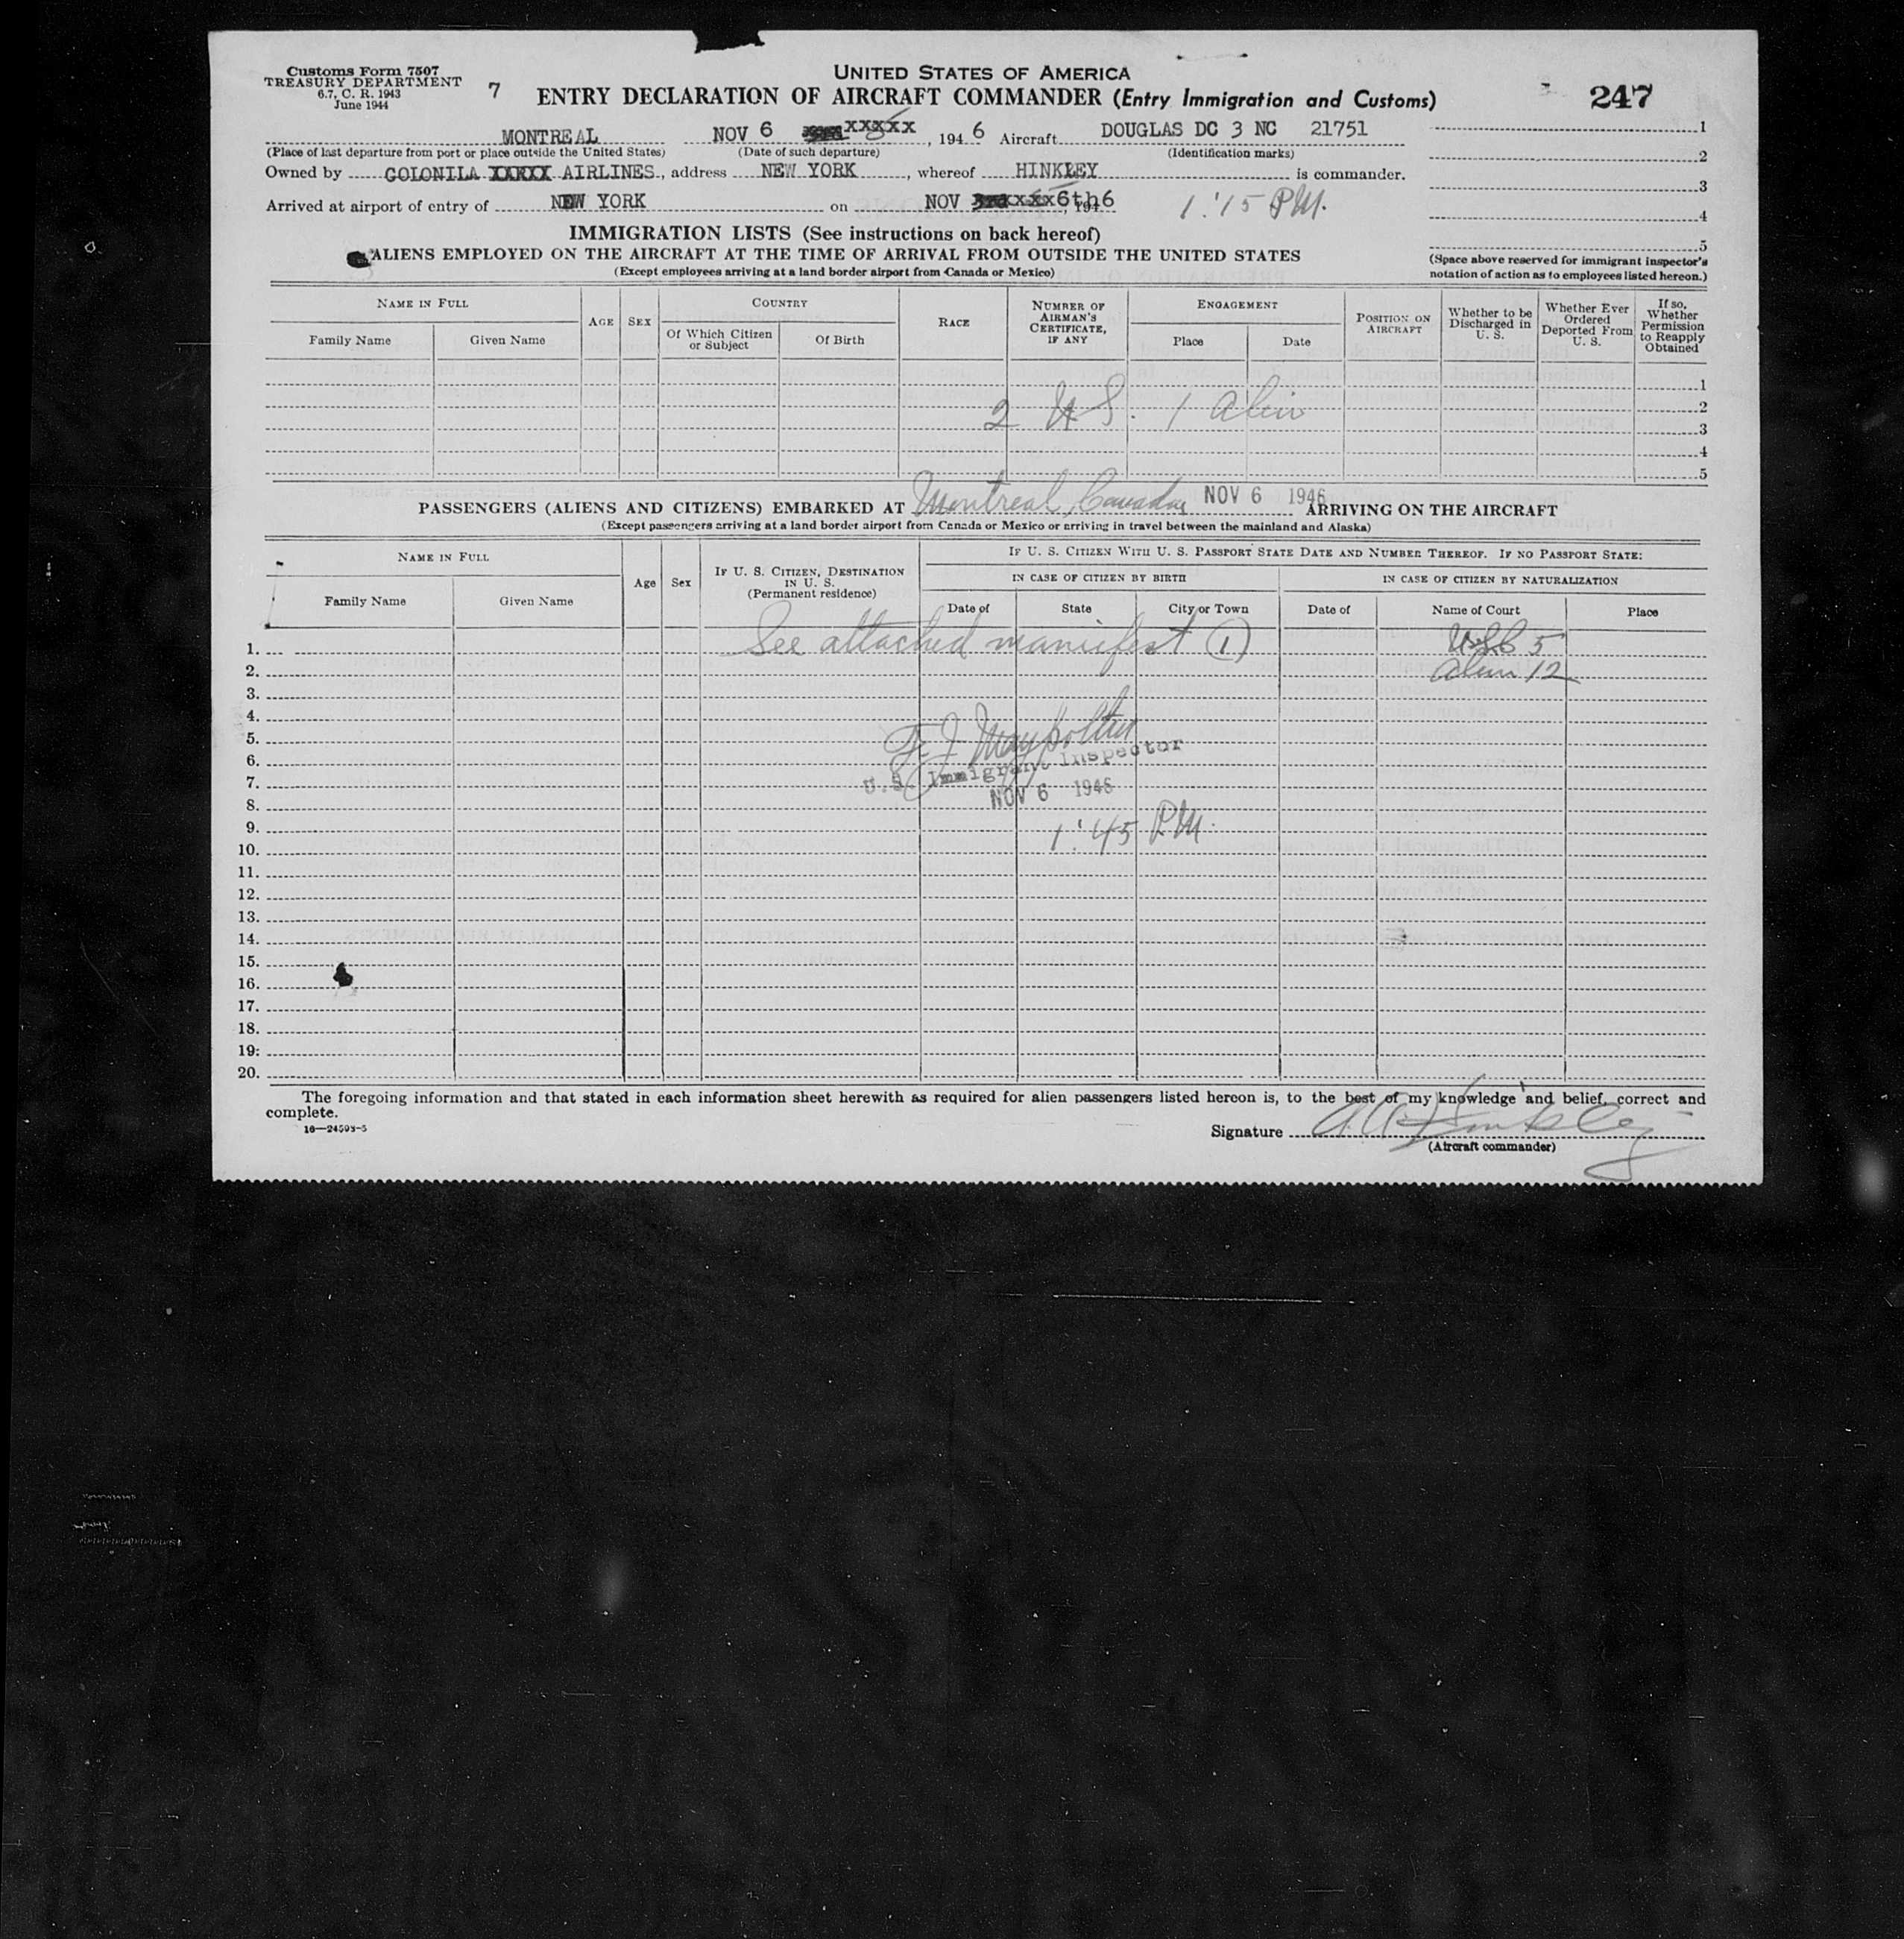 Customs Form 7507
TREASURY DEPARTMENT
6.7, C. R. 1943
June 1944
7
UNITED STATES OF AMERICA
ENTRY DECLARATION OF AIRCRAFT COMMANDER (Entry Immigration and Customs)
247
MONTREAL NOV 6 XXXXX , 194 6 Aircraft DOUGLAS DC 3 NC 21751
(Place of last departure from port or place outside the United States) (Date of such departure) (Identification marks)
Owned by COLONILA XXXXX AIRLINES , address NEW YORK , whereof HINKLEY is commander.
Arrived at airport of entry of NEW YORK on NOV 6th , 194 6 1:15 PM.
1
2
3
4
5
(Space above reserved for immigrant inspector's notation of action as to employees listed hereon.)
IMMIGRATION LISTS (See instructions on back hereof)
ALIENS EMPLOYED ON THE AIRCRAFT AT THE TIME OF ARRIVAL FROM OUTSIDE THE UNITED STATES
(Except employees arriving at a land border airport from Canada or Mexico)
NAME IN FULL
Family Name Given Name
AGE SEX
COUNTRY
Of Which Citizen or Subject Of Birth
RACE
NUMBER OF AIRMAN'S CERTIFICATE, IF ANY
ENGAGEMENT
Place Date
POSITION ON AIRCRAFT
Whether to be Discharged in U. S.
Whether Ever Ordered Deported From U. S.
If so, Whether Permission to Reapply Obtained
1
2
3
4
5
2 U S. 1 Alien
PASSENGERS (ALIENS AND CITIZENS) EMBARKED AT Montreal, Canada NOV 6 1946 ARRIVING ON THE AIRCRAFT
(Except passengers arriving at a land border airport from Canada or Mexico or arriving in travel between the mainland and Alaska)
NAME IN FULL
Family Name Given Name
Age Sex
IF U. S. CITIZEN, DESTINATION IN U. S. (Permanent residence)
IF U. S. CITIZEN WITH U. S. PASSPORT STATE DATE AND NUMBER THEREOF. IF NO PASSPORT STATE:
IN CASE OF CITIZEN BY BIRTH IN CASE OF CITIZEN BY NATURALIZATION
Date of State City or Town Date of Name of Court Place
1. See attached manifest (1) USC 5
2. Alien 12
3.
4.
5.
6. U.S. Immigrant Inspector
7.
8. NOV 6 1946
9. 1:45 PM.
10.
11.
12.
13.
14.
15.
16.
17.
18.
19.
20.
The foregoing information and that stated in each information sheet herewith as required for alien passengers listed hereon is, to the best of my knowledge and belief, correct and
complete.
16—24593-5
Signature A A Hinkley
(Aircraft commander)